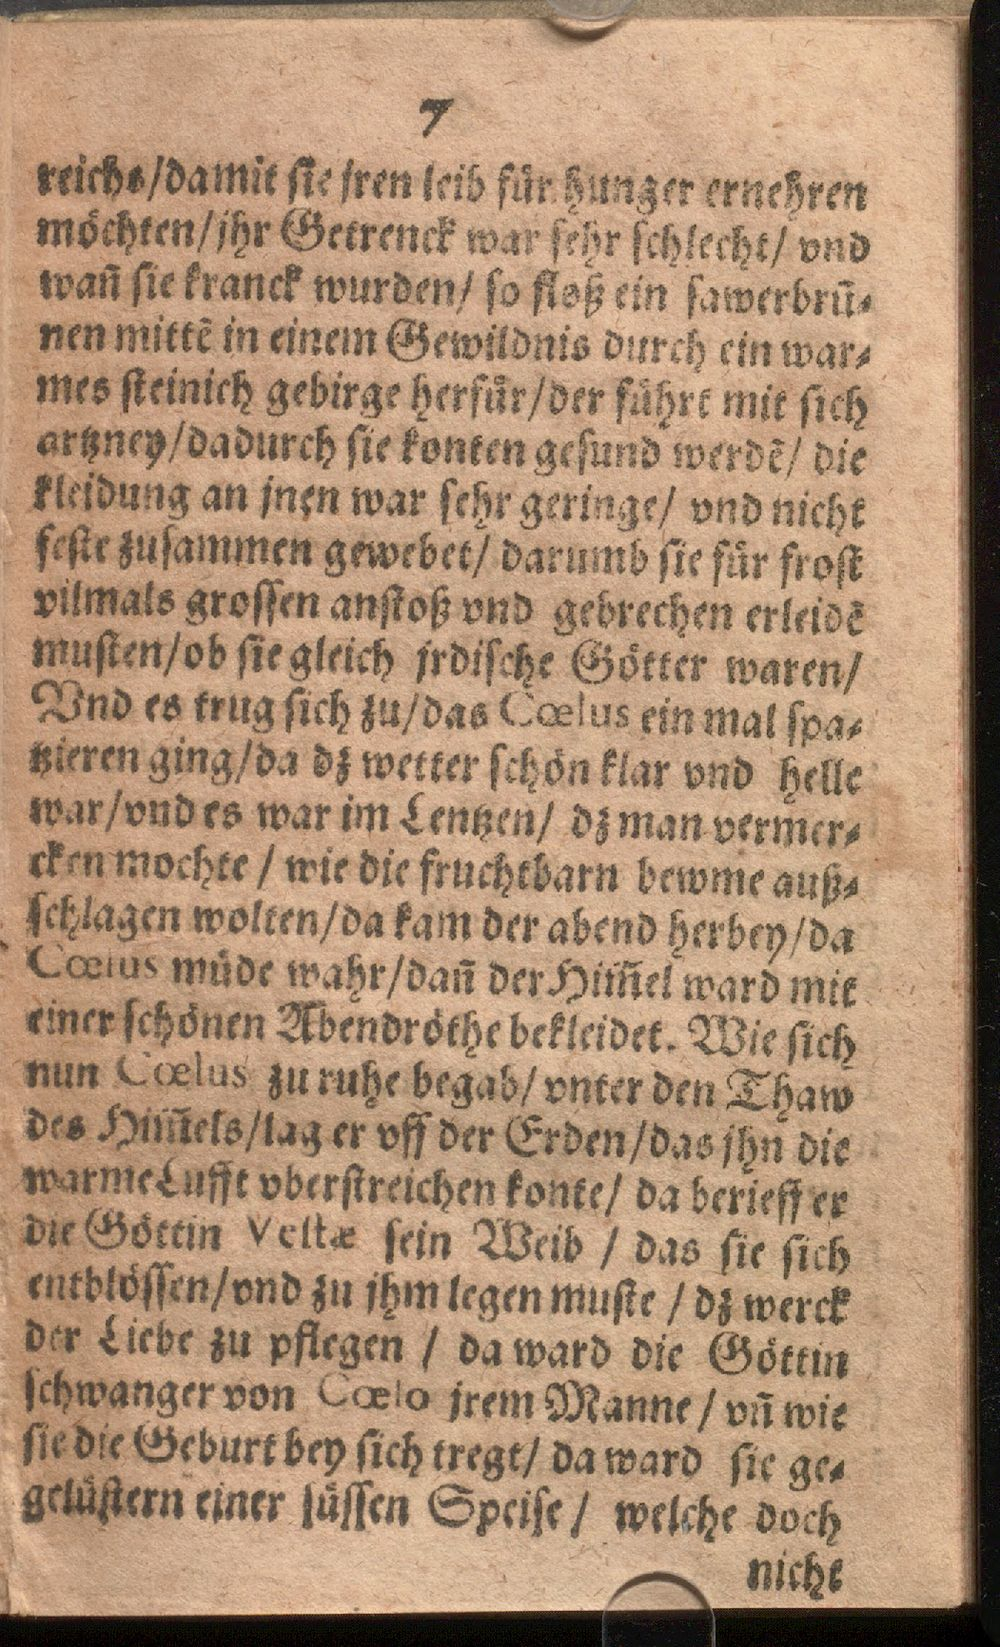 7
reichs/damit sie jren leib für hunger ernehren
möchten/jhr Getrenck war sehr schlecht/ vnd
wañ sie kranck wurden/ so floß ein sawerbrũ-
nen mittẽ in einem Gewildnis durch ein war-
mes steinich gebirge herfür/der führt mit sich
artzney/dadurch sie konten gesund werdẽ/ die
kleidung an jnen war sehr geringe/ vnd nicht
feste zusammen gewebet/ darumb sie für frost
vilmals grossen anstoß vnd gebrechen erleidẽ
musten/ob sie gleich jrdische Götter waren/
Vnd es trug sich zu/das Cœlus ein mal spa-
tzieren ging/da dz wetter schön klar vnd helle
war/vnd es war im Lentzen/ dz man vermer-
cken mochte / wie die fruchtbarn bewme auß-
schlagen wolten/da kam der abend herbey/da
Cœlus müde wahr/dañ der Him̃el ward mit
einer schönen Abendröthe bekleidet. Wie sich
nun Cœlus zu ruhe begab/ vnter den Thaw
des Him̃els/lag er vff der Erden/das jhn die
warme Lufft vberstreichen konte/ da berieff er
die Göttin Vestæ sein Weib / das sie sich
entblössen/vnd zu jhm legen muste / dz werck
der Liebe zu pflegen / da ward die Göttin
schwanger von Cœlo jrem Manne / vñ wie
sie die Geburt bey sich tregt/ da ward sie ge-
gelüstern einer süssen Speise / welche doch
nicht